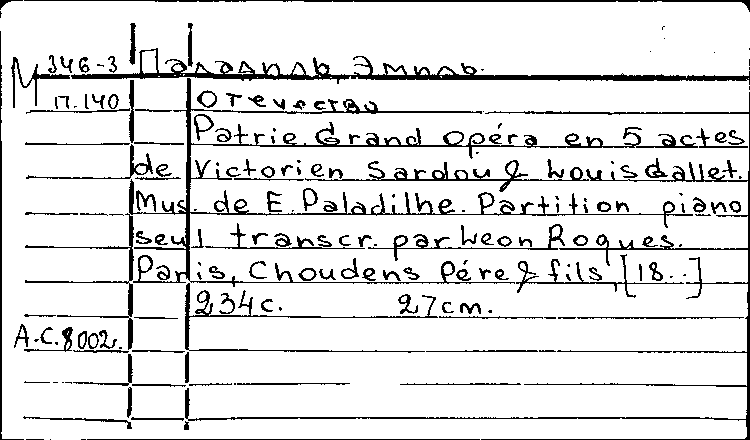 М 346-3 Паладиль, Эмиль.
П.140 Отечество
Patrie. Grand opéra en 5 actes
de Victorien Sardou & Louis Gallet.
Mus. de E. Paladilhe. Partition piano
seul transcr. par Leon Roques.
Paris, Choudens Pére & fils, [18..]
234 с. 27 cm.
А.С.8002.